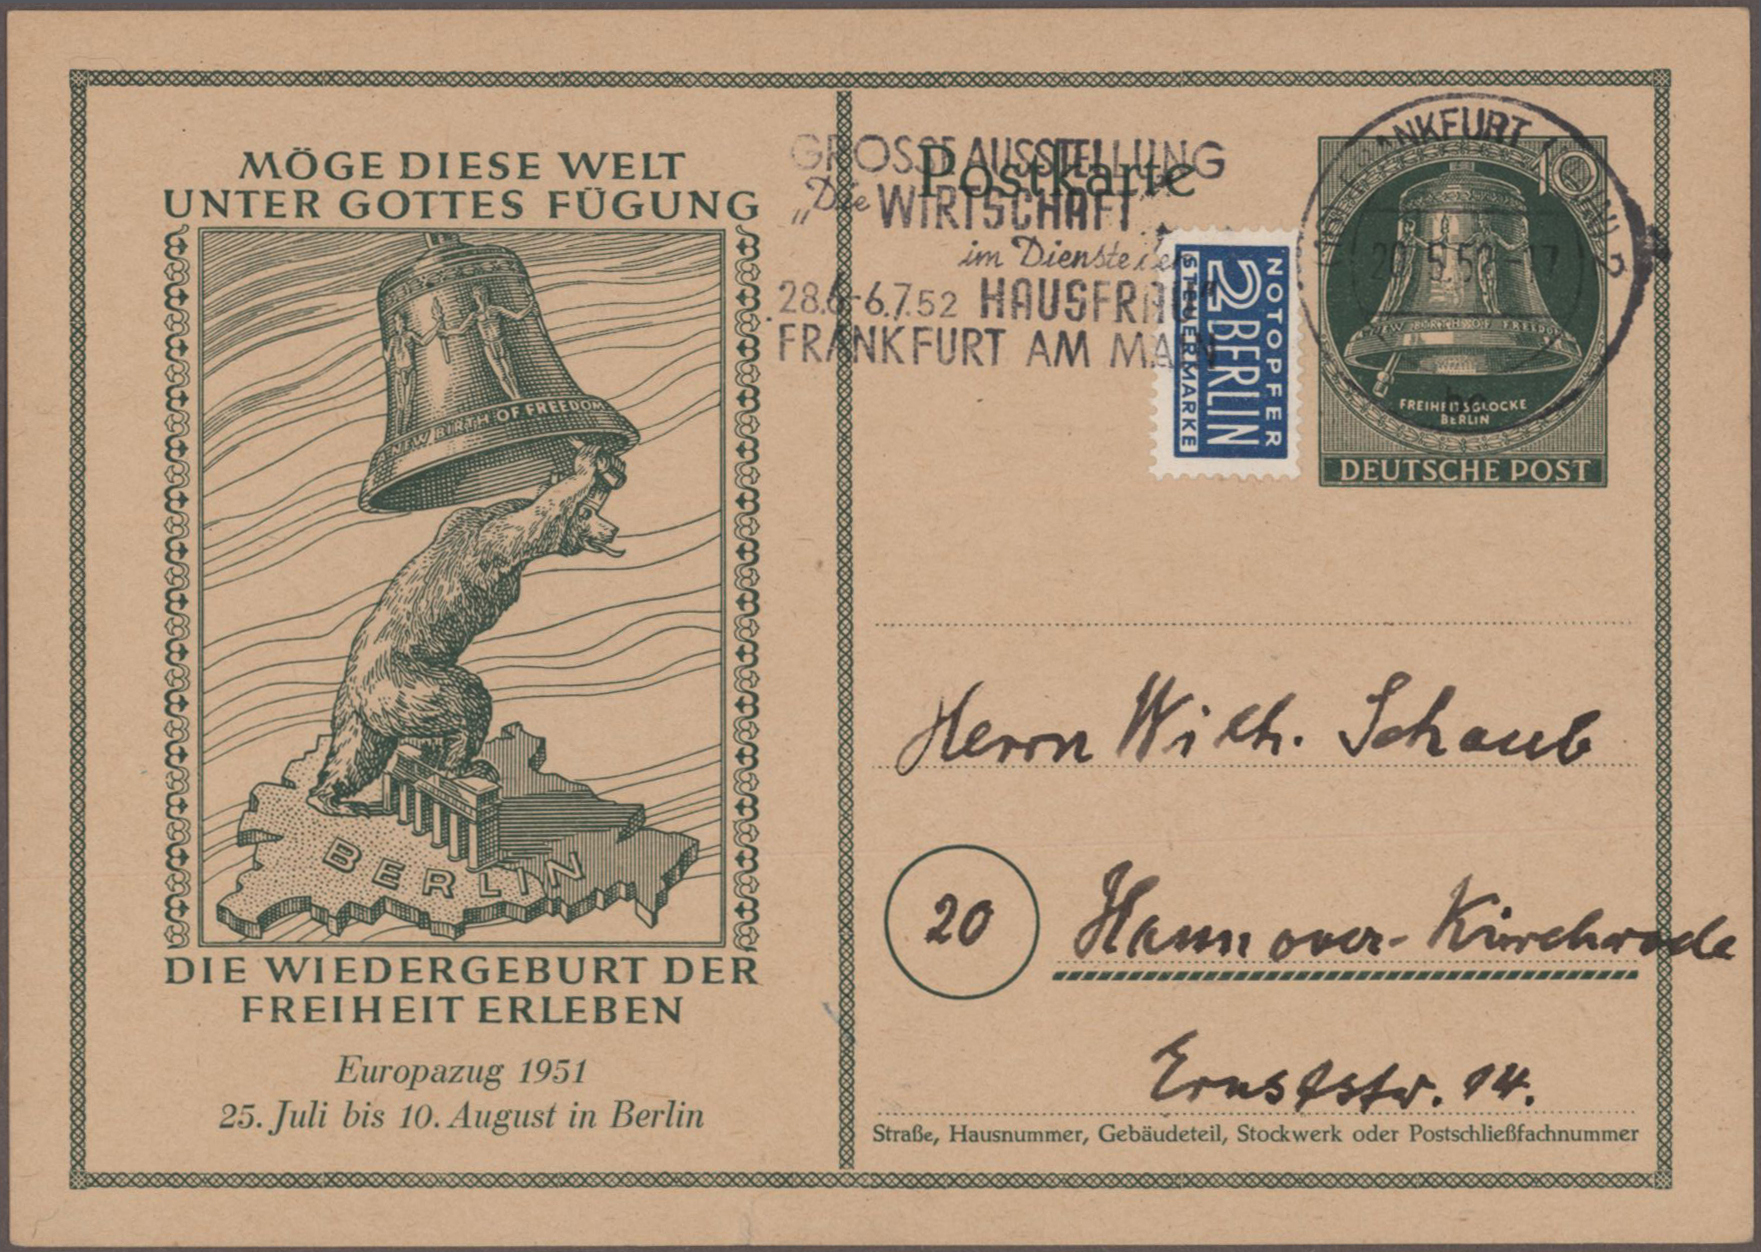 MÖGE DIESE WELT
UNTER GOTTES FÜGUNG
NEW BIRTH OF FREEDOM
BERLIN
DIE WIEDERGEBURT DER
FREIHEIT ERLEBEN
Europazug 1951
25. Juli bis 10. August in Berlin
Postkarte
GROSSE AUSSTELLUNG
„Die WIRTSCHAFT"
im Dienste der
28.6.-6.7.52 HAUSFRAU"
FRANKFURT AM MAIN
NOTOPFER
2 BERLIN
STEUERMARKE
FRANKFURT (MAIN) 2
5.52-17
10
NEW BIRTH OF FREEDOM
FREIHEITSGLOCKE
BERLIN
DEUTSCHE POST
Herrn Wilh. Schaub
20 Hannover-Kirchrode
Ernststr. 14.
Straße, Hausnummer, Gebäudeteil, Stockwerk oder Postschließfachnummer